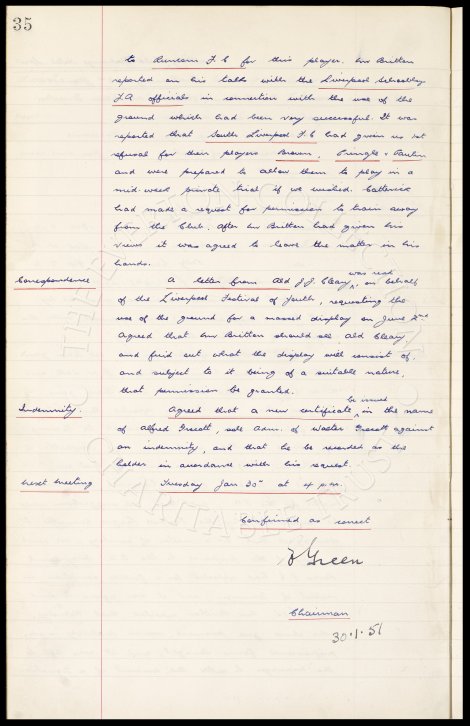 35
to Runcorn F.C for this player. Mr Britton
reported on his talks with the Liverpool Schoolboy
F.A officials in connection with the use of the
ground which had been very successful. It was
reported that South Liverpool F.C had given us 1st
refusal for their players Brown, Pringle &
and were prepared to allow them to play in a
mid-week private trial if we wished. Catterick
had made a request for permission to train away
from the Club. After Mr Britton had given his
views it was agreed to leave the matter in his
hands.
Correspondence A letter from Ald J.J. Cleary was read on behalf
of the Liverpool Festival of Youth, requesting the
use of the ground for a massed display on June 2nd
Agreed that Mr Britton should see Ald Cleary
and find out what the display will consist of.
and subject to it being of a suitable nature,
that permission be granted.
Indemnity. Agreed that a new certificate be issued in the name
of Alfred, sole Adm. of Walter against
an indemnity, and that he be recorded as the
holder in accordance with his request.
Next Meeting Tuesday Jan 30th at 4 p.m.
Confirmed as correct
Green
Chairman
30.1.51